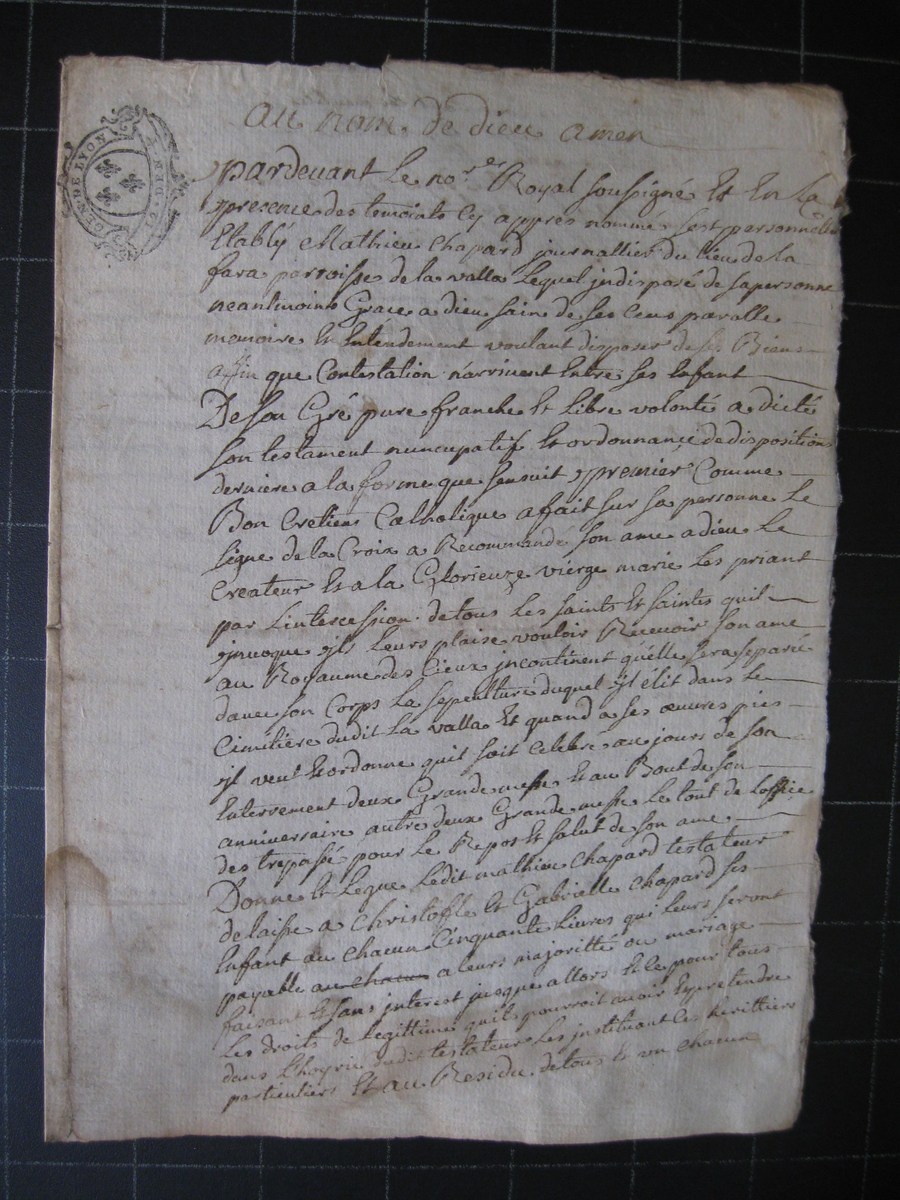 GEN. DE LYON
DEN. ST
au nom de dieu amen
pardevant Le no.re Royal soussigné Et En La
presence des temoints Cy apprés nommés sest personnelle
Etably Mathieu Chapard journallier du Lieu de la
fara parroisse de la valla Lequel jndisposé de sa personne
neantmoins Grace a dieu sain de ses Cens parolle
memoire Et Entendement voulant disposer de ses Biens
affin que Contestation n'arrivent Entre ses Enfant
De son Gré pure franche Et Libre volonté a dicté
son testament nuncupatif Et ordonnance de disposition
derniere a la forme que sensuit premier Comme
Bon Cretien Catholique a fait sur sa personne Le
signe de la Croix a Recommandé son ame a dieu Le
Createur Et a la Glorieuze vierge marie Les priant
par L'intercession de tous Les saints Et saintes quil
jnvoque jls Leurs plaise vouloir Recevoir son ame
au Royaume des Cieux jncontinent qu'elle sera separée
davec son Corps La sepulture duquel jl élit dans Le
Cimetiere dudit La valla Et quand a ses œuvres pies
jl veut Et ordonne quil soit Celebré au jours de son
Enterrement deux Grande messe Et au Bout de son
anniversaire autre deux Grande messe Le tout de Loffice
des trepassé pour Le Repos Et salut de son ame
Donne Et Legue Ledit mathieu Chapard testateur
delaisse a Christoffle Et Gabrielle Chapard ses
Enfant au Chacun Cinquante Livres qui Leurs seront
payable au Chacun a Leurs majoritté ou mariage
faisant Et sans jnterest jusque allors Et Ce pour tous
Les droits de Legittime quils pourroit avoir Et pretendre
dans L'hoyrie dudit testateur Les jnstituant Ces herittiers
particuliers Et au Residu de tous Et un Chacun